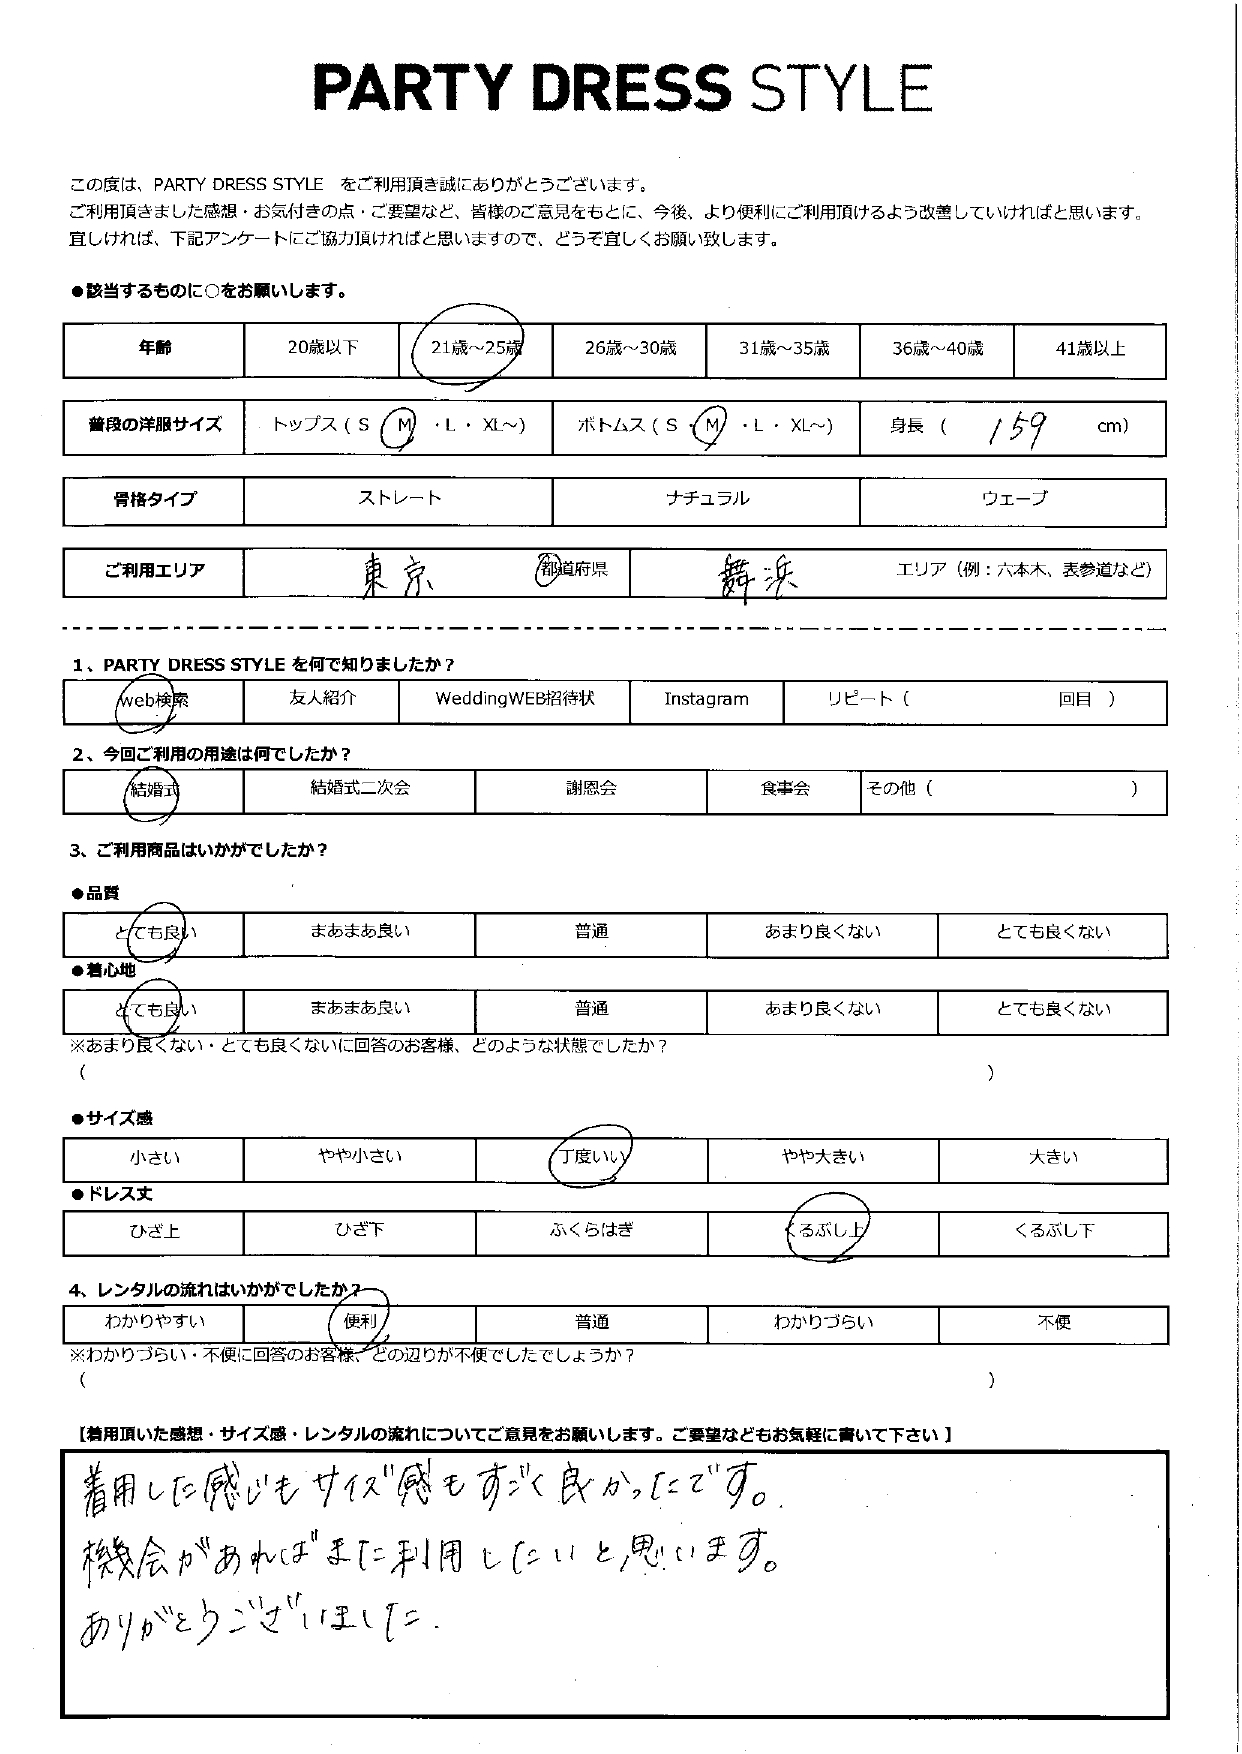 PARTY DRESS STYLE
この度は、PARTY DRESS STYLE をご利用頂き誠にありがとうございます。
ご利用頂きました感想・お気付きの点・ご要望など、皆様のご意見をもとに、今後、より便利にご利用頂けるよう改善していければと思います。
宜しければ、下記アンケートにご協力頂ければと思いますので、どうぞ宜しくお願い致します。
●該当するものに○をお願いします。
年齢 20歳以下 21歳～25歳 26歳～30歳 31歳～35歳 36歳～40歳 41歳以上
普段の洋服サイズ トップス ( S ・ M ・L ・ XL～) ボトムス ( S ・ M ・L ・ XL～) 身長 ( 159 cm)
骨格タイプ ストレート ナチュラル ウェーブ
ご利用エリア 東京 都道府県 舞浜 エリア（例：六本木、表参道など）
1、PARTY DRESS STYLE を何で知りましたか？
web検索 友人紹介 WeddingWEB招待状 Instagram リピート（ 回目 ）
2、今回ご利用の用途は何でしたか？
結婚式 結婚式二次会 謝恩会 食事会 その他（ ）
3、ご利用商品はいかがでしたか？
●品質
とても良い まあまあ良い 普通 あまり良くない とても良くない
●着心地
とても良い まあまあ良い 普通 あまり良くない とても良くない
※あまり良くない・とても良くないに回答のお客様、どのような状態でしたか？
（ ）
●サイズ感
小さい やや小さい 丁度いい やや大きい 大きい
●ドレス丈
ひざ上 ひざ下 ふくらはぎ くるぶし上 くるぶし下
4、レンタルの流れはいかがでしたか？
わかりやすい 便利 普通 わかりづらい 不便
※わかりづらい・不便に回答のお客様、どの辺りが不便でしたでしょうか？
（ ）
【着用頂いた感想・サイズ感・レンタルの流れについてご意見をお願いします。ご要望などもお気軽に書いて下さい】
着用した感じもサイズ感もすごく良かったです。
機会があればまた利用したいと思います。
ありがとうございました.